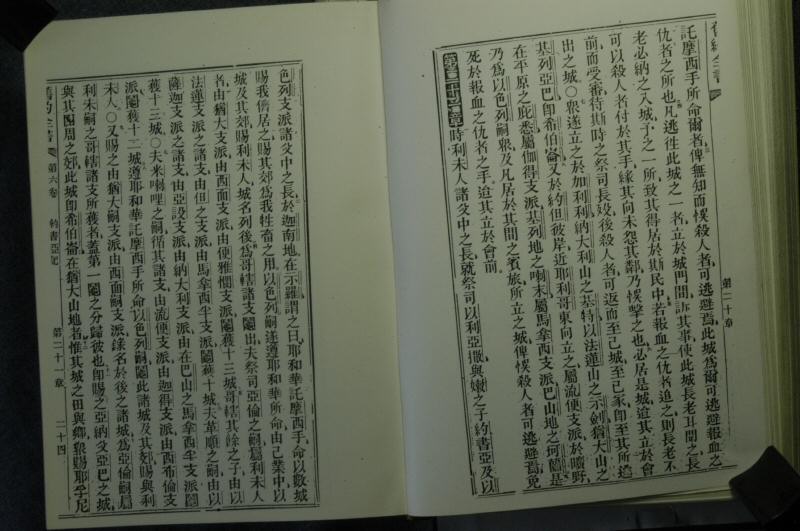 舊約全書
第二十章
託摩西手所命爾者俾無知而悞殺人者可逃避焉此城爲爾可逃避報血之
仇者之所也凡逃徃此城之一者立於城門間訴其事使此城長老耳聞之長
老必納之入城予之一所致其得居於斯民中若報血之仇者追之則長老不
可以殺人者付於其手緣其向未怨其鄰乃悞擊之也必居是城迨其立於會
前而受審待斯時之祭司長歿後殺人者可返而至己城至己家卽至其所逃
出之城○衆遂立之於加利利納大利山之基特以法蓮山之示劍猶大山之
基列亞巴卽希伯崙又於約但彼岸近耶利哥東向立之屬流便支派於曠野
在平原之庇悉屬伽得支派基列地之喇末屬馬拿西支派巴山地之坷隨是
乃爲以色列嗣衆及凡居於其間之賓旅所立之城俾悞殺人者可逃避焉免
死於報血之仇者之手迨其立於會前
第二十一章時利未人諸父中之長就祭司以利亞撒與嫩之子約書亞及以
色列支派諸父中之長於迦南地在示羅謂之曰耶和華託摩西手命以數城
賜我儕居之賜其郊爲我牲畜之用以色列嗣遂遵耶和華所命由己業中以
城及其郊賜利未人城名列後爲哥轄諸支鬮出夫祭司亞倫之嗣屬利未人
者由猶大支派由西面支派由便雅憫支派鬮獲十三城哥轄其餘之子由以
法蓮支派之諸支由但之支派由馬拿西半支派鬮獲十城夫革順之嗣由以
薩迦支派之諸支由亞設支派由納大利支派由在巴山之馬拿西半支派鬮
獲十三城○夫米喇哩之嗣循其諸支由流便支派由迦得支派由西布倫支
派鬮獲十二城遵耶和華託摩西手所命以色列嗣鬮此諸城及其郊賜與利
未人○又賜之由猶大嗣支派由西面嗣支派錄名於後之諸城爲亞倫嗣屬
利未嗣之哥轄諸支所獲者蓋第一鬮之分歸彼也卽賜之亞納父亞巴之城
與其四周之郊此城卽希伯崙在猶大山地者惟其城之田與鄉衆賜耶孚尼
舊約全書 第六卷 約書亞記 第二十一章 二十四